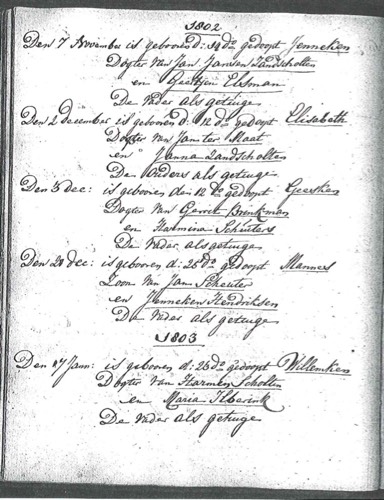 1802
Den 7 November is gebooren d: 14 do gedoopt Jenneken
Dogter van Jan Jansen Landscholten
en Geertjen Elsman
De Vader als getuige
Den 2 December is gebooren d: 12 do gedoopt Elisabeth
Dogter van Jan ter Maat
en Janna Landscholten
De Ouders als getuige
Den 5 dec: is gebooren den 12 do gedoopt Geesken
Dogter van Gerrit Brinkman
en Harmina Scheuters
De Vader als getuige
Den 20 dec: is gebooren d: 26 do gedoopt Mannes
Zoon van Jan Scheuter
en Jenneken Hendriksen
De Vader als getuige
1803
Den 17 Jan: is gebooren d: 23 do gedoopt Willemken
Dogter van Harmen Scholten
en Maria Ilberink
De Vader als getuige